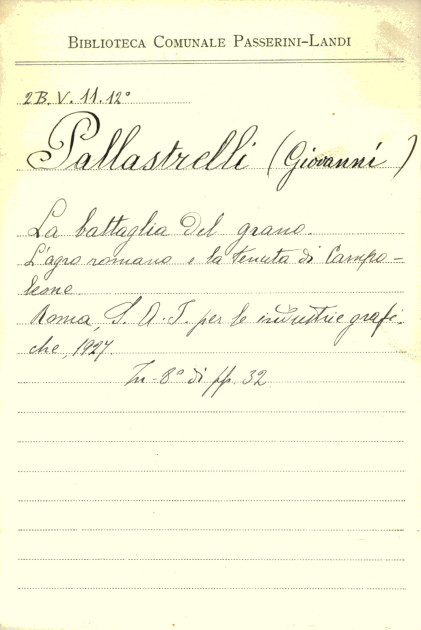 BIBLIOTECA COMUNALE PASSERINI-LANDI
2B. V. 11. 12°
Pallastrelli (Giovanni)
La battaglia del grano.
L'agro romano e la tenuta di Campo-
leone
Roma, S. A. I. per le industrie grafi-
che, 1927.
In-8° di pp. 32